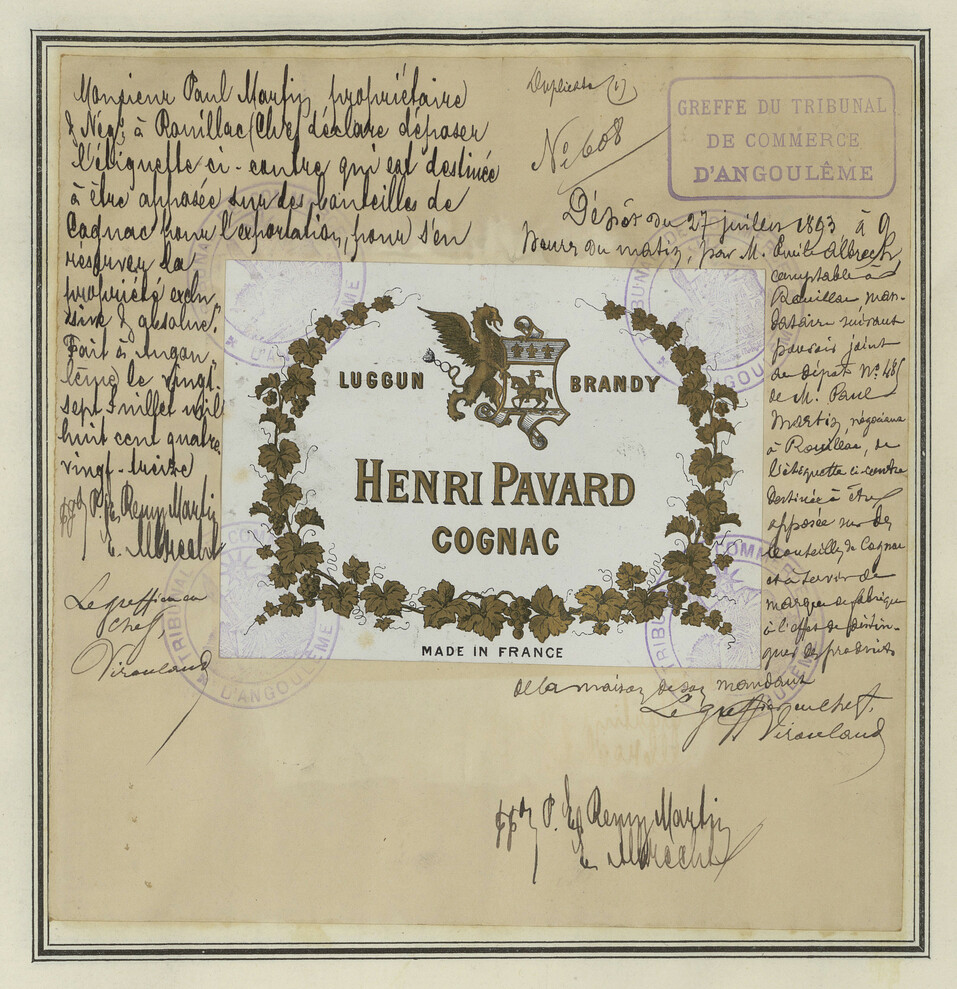 Monsieur Paul Martin, propriétaire
& Négt à Rouillac (Chte) déclare déposer
l'étiquette ci-contre qui est destinée
à être apposée sur des bouteilles de
Cognac pour l'exportation, pour s'en
réserver la
propriété exclu
sive & absolue."
Fait à Angou
lême, le vingt
sept Juillet mil
huit cent quatre
vingt-treize
P. E. Remy Martin
E. Albrecht
Le greffier en
chef,
Viroulaud
Duplicata (1)
No 608
GREFFE DU TRIBUNAL
DE COMMERCE
D'ANGOULÊME
Dépôt du 27 juillet 1893 à 9
heures du matin, par M. Emile Albrecht
comptable à
Rouillac man-
dataire suivant
pouvoir joint
au dépôt No
de M. Paul
Martin, négociant
à Rouillac, de
l'étiquette ci-contre
destinée à être
apposée sur des
bouteilles de Cognac
et à servir de
marque de fabrique
à l'effet de distin-
guer les produits
de la maison de son mandant
Le greffier en chef,
Viroulaud
P. E. Remy Martin
E. Albrecht
LUGGUN BRANDY
HENRI PAVARD
COGNAC
MADE IN FRANCE
TRIBUNAL
D'ANGOULÊME
TRIBUNAL
ANGOULÊME
TRIBUNAL
COM
D'ANGOULÊME
TRIBUNAL
COMMERCE
ANGOULÊME